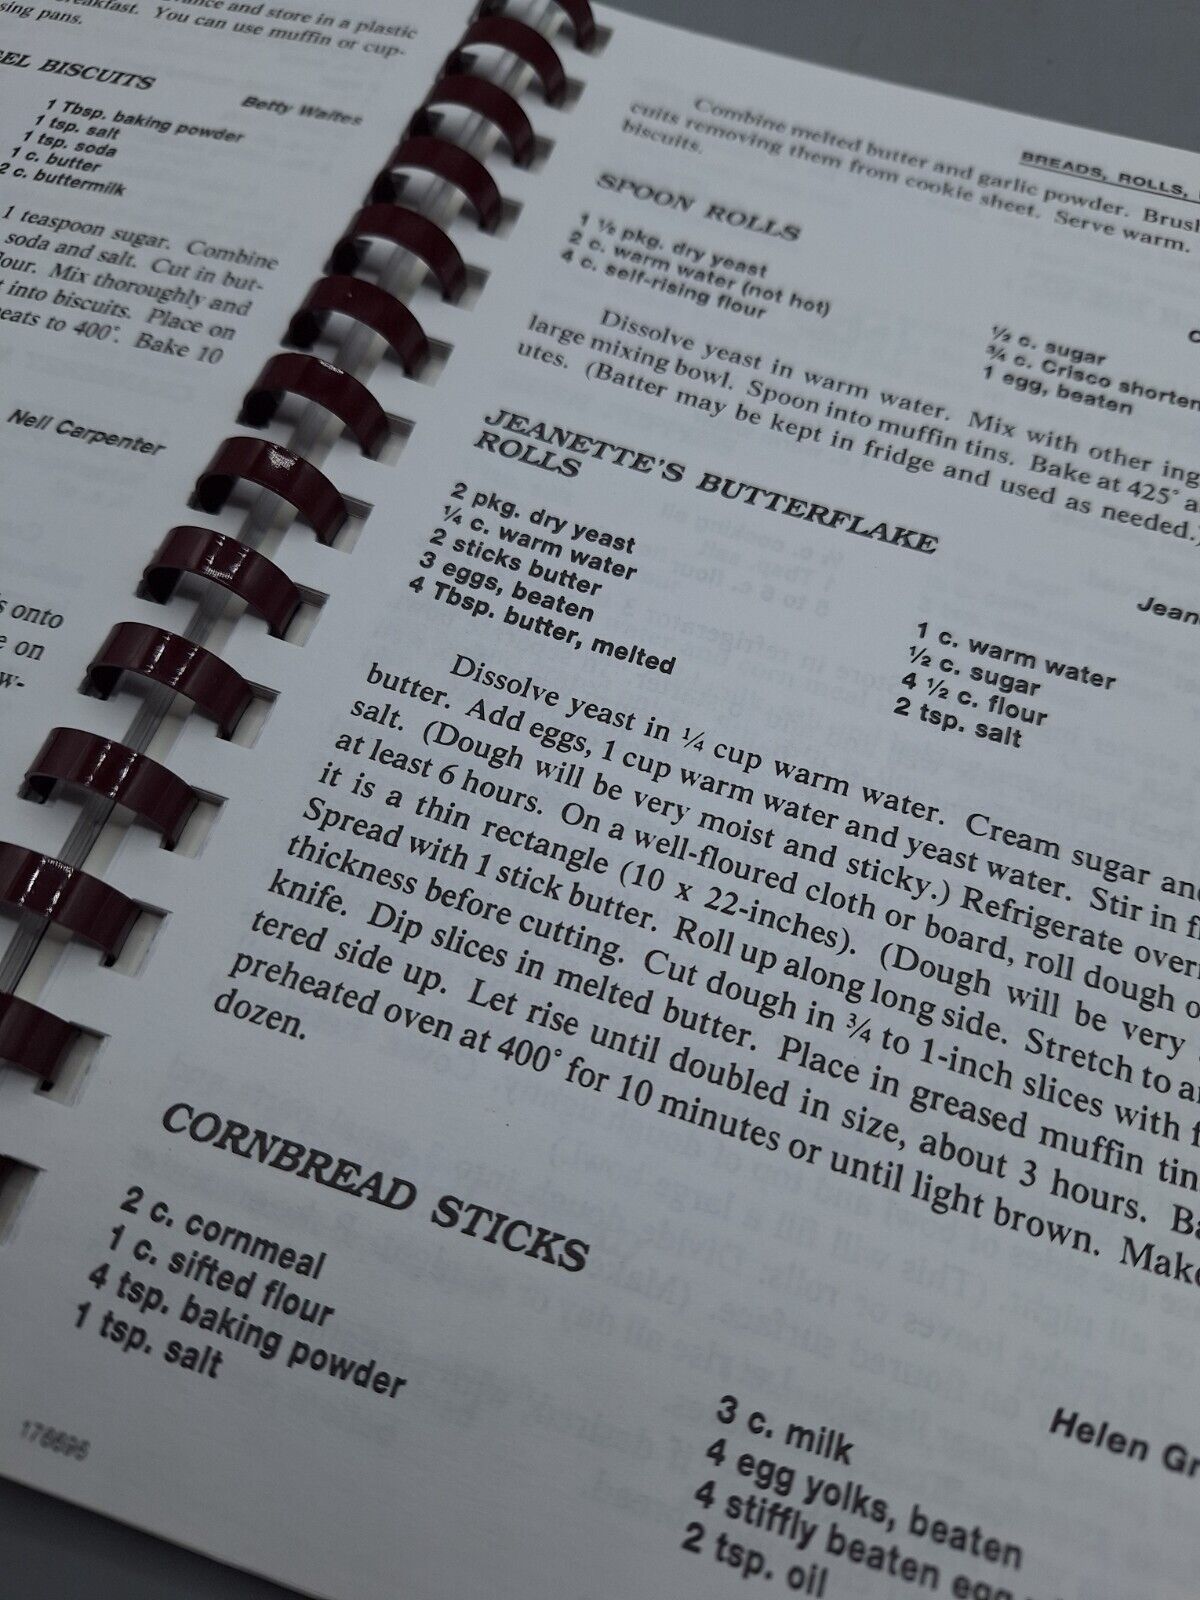 and store in a plastic
You can use muffin or cup-
sing pans.
EL BISCUITS
Betty Waites
1 Tbsp. baking powder
1 tsp. salt
1 tsp. soda
1 c. butter
2 c. buttermilk
1 teaspoon sugar. Combine
soda and salt. Cut in but-
Mix thoroughly and
into biscuits. Place on
to 400°. Bake 10
Nell Carpenter
onto
on
w-
BREADS, ROLLS,
Combine melted butter and garlic powder. Brush
cuits removing them from cookie sheet. Serve warm.
biscuits.
SPOON ROLLS
pkg. dry yeast
2 c. warm water (not hot)
4 c. self-rising flour
½ c. sugar
¾ c. Crisco shorten
1 egg, beaten
Dissolve yeast in warm water. Mix with other ing
large mixing bowl. Spoon into muffin tins. Bake at 425° a
utes. (Batter may be kept in fridge and used as needed.)
JEANETTE'S BUTTERFLAKE
ROLLS
Jean
2 pkg. dry yeast
¼ c. warm water
2 sticks butter
3 eggs, beaten
4 Tbsp. butter, melted
1 c. warm water
½ c. sugar
4 ½ c. flour
2 tsp. salt
Dissolve yeast in ¼ cup warm water. Cream sugar an
butter. Add eggs, 1 cup warm water and yeast water. Stir in f
salt. (Dough will be very moist and sticky.) Refrigerate over
at least 6 hours. On a well-floured cloth or board, roll dough o
it is a thin rectangle (10 x 22-inches). (Dough will be very
Spread with 1 stick butter. Roll up along long side. Stretch to a
thickness before cutting. Cut dough in ¾ to 1-inch slices with
knife. Dip slices in melted butter. Place in greased muffin tin
tered side up. Let rise until doubled in size, about 3 hours. Ba
preheated oven at 400° for 10 minutes or until light brown. Make
dozen.
CORNBREAD STICKS
Helen Gr
2 c. cornmeal
1 c. sifted flour
4 tsp. baking powder
1 tsp. salt
3 c. milk
4 egg yolks, beaten
4 stiffly beaten egg
2 tsp. oil
176695